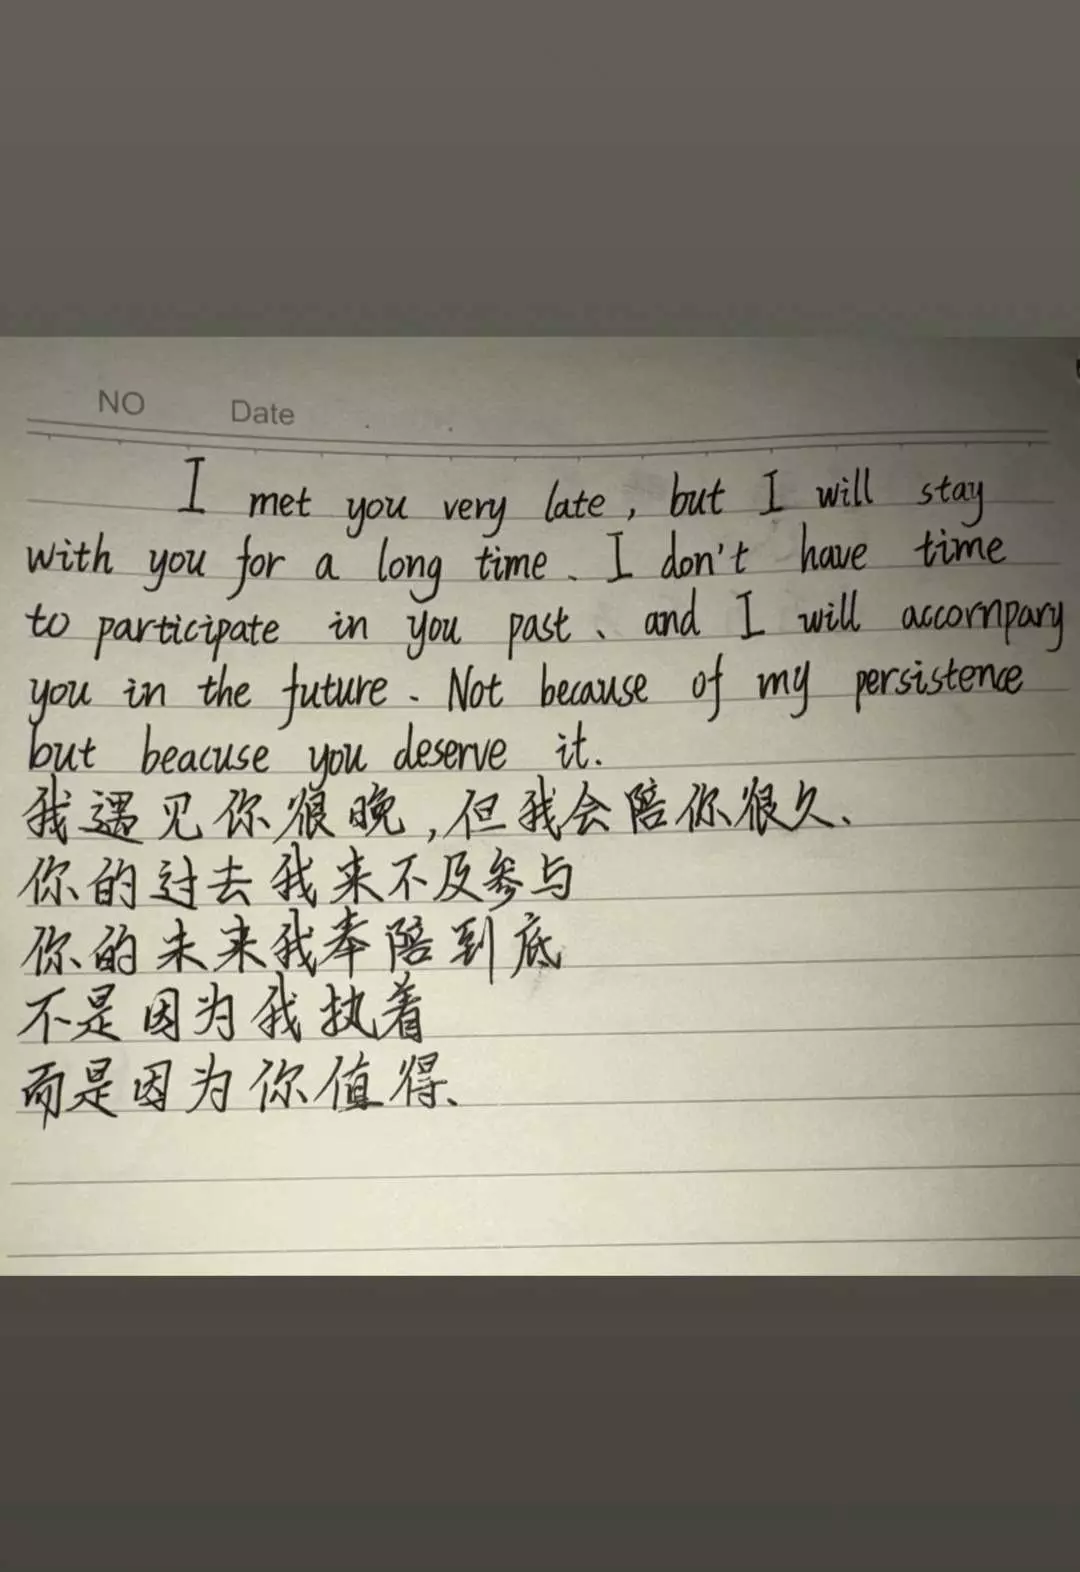 NO Date
I met you very late, but I will stay
with you for a long time. I don't have time
to participate in you past、and I will accornpary
you in the future. Not because of my persistence
but beacuse you deserve it.
我遇见你很晚,但我会陪你很久、
你的过去我来不及参与
你的未来我奉陪到底
不是因为我执着
而是因为你值得、